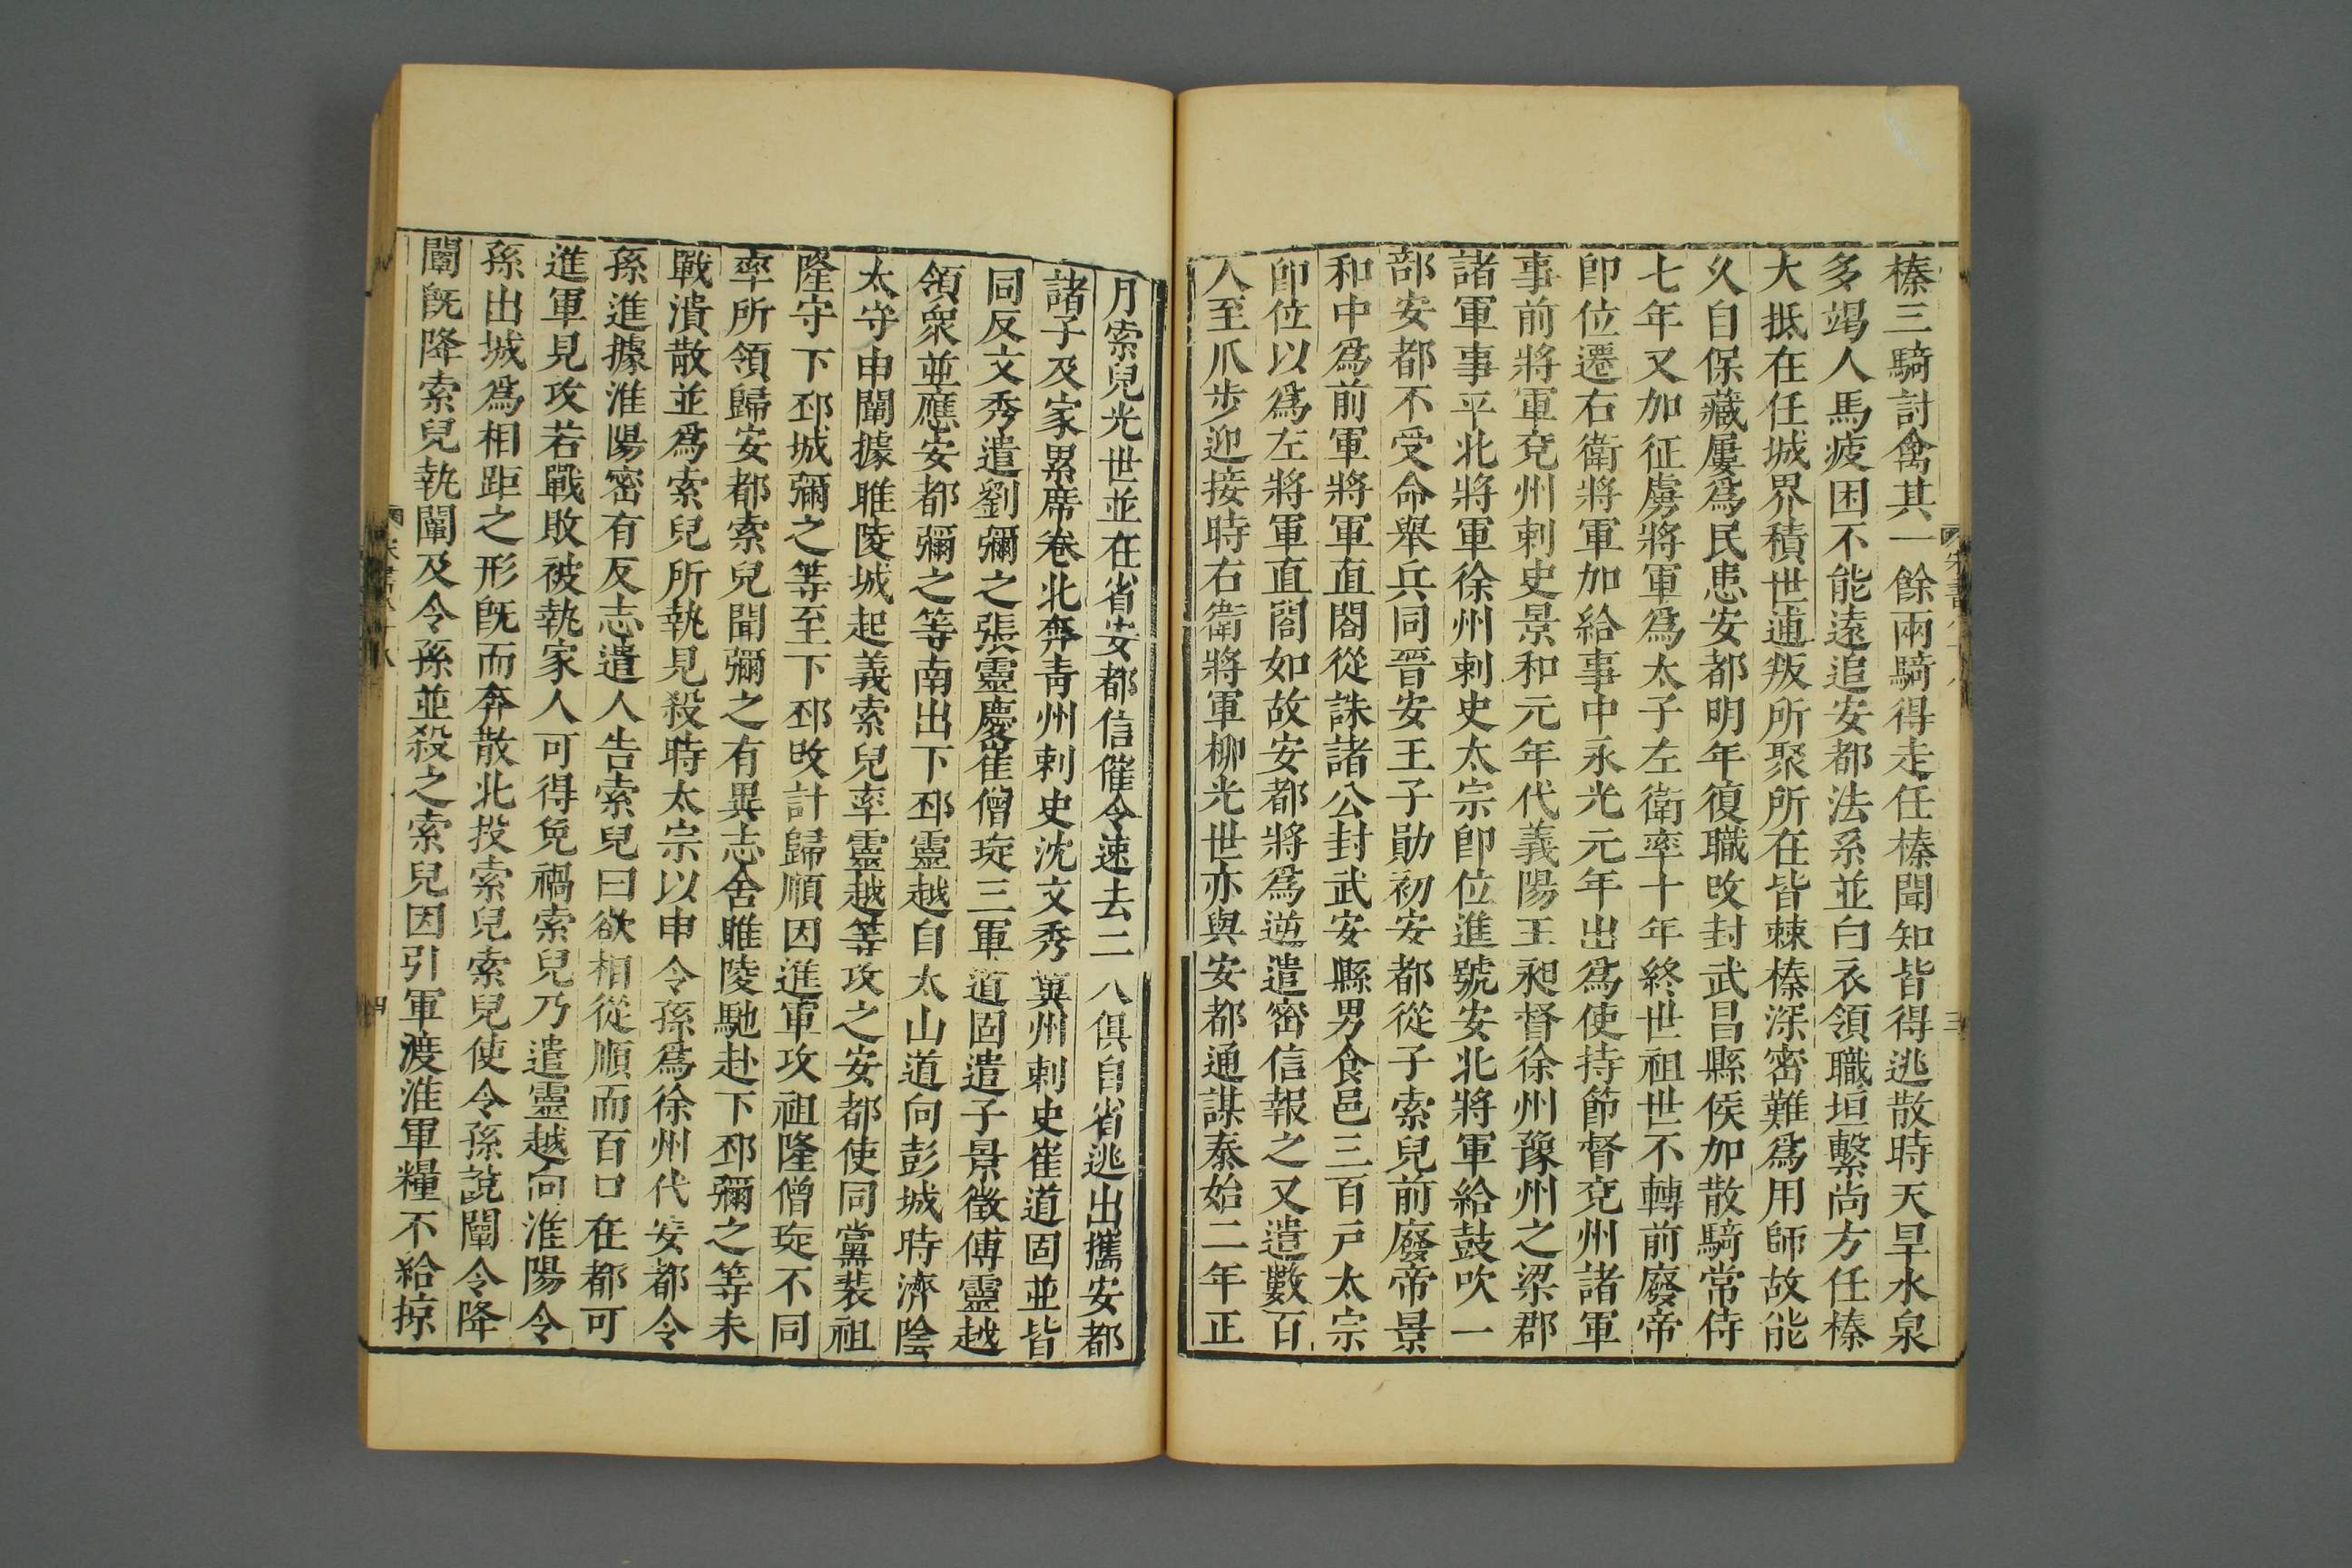 榛三騎討禽其一餘兩騎得走任榛聞知皆得逃散時天旱水泉
多竭人馬疲困不能遠追安都法系並白衣領職垣繫尚方任榛
大抵在任城界積世逋叛所聚所在皆棘榛深密難爲用師故能
久自保藏屢爲民患安都明年復職改封武昌縣侯加散騎常侍
七年又加征虜將軍爲太子左衛率十年終世祖世不轉前廢帝
卽位遷右衛將軍加給事中永光元年出爲使持節督兗州諸軍
事前將軍兗州刺史景和元年代義陽王昶督徐州豫州之梁郡
諸軍事平北將軍徐州刺史太宗卽位進號安北將軍給鼓吹一
部安都不受命舉兵同晉安王子勛初安都從子索兒前廢帝景
和中爲前軍將軍直閤從誅諸公封武安縣男食邑三百戸太宗
卽位以爲左將軍直閤如故安都將爲逆遣密信報之又遣數百
人至瓜步迎接時右衛將軍柳光世亦與安都通謀泰始二年正
月索兒光世並在省安都信催令速去二人俱自省逃出攜安都
諸子及家累席卷北奔青州刺史沈文秀冀州刺史崔道固並皆
同反文秀遣劉彌之張靈慶崔僧琁三軍道固遣子景徵傅靈越
領衆並應安都彌之等南出下邳靈越自太山道向彭城時濟陰
太守申闡據睢陵城起義索兒率靈越等攻之安都使同黨裴祖
隆守下邳城彌之等至下邳改計歸順因進軍攻祖隆僧琁不同
率所領歸安都索兒聞彌之有異志舍睢陵馳赴下邳彌之等未
戰潰散並爲索兒所執見殺時太宗以申令孫爲徐州代安都令
孫進據淮陽密有反志遣人告索兒曰欲相從順而百口在都可
進軍見攻若戰敗被執家人可得免禍索兒乃遣靈越向淮陽令
孫出城爲相距之形旣而奔散北投索兒索兒使令孫說闡令降
闡旣降索兒執闡及令孫並殺之索兒因引軍渡淮軍糧不給掠
宋書八十八
三
四